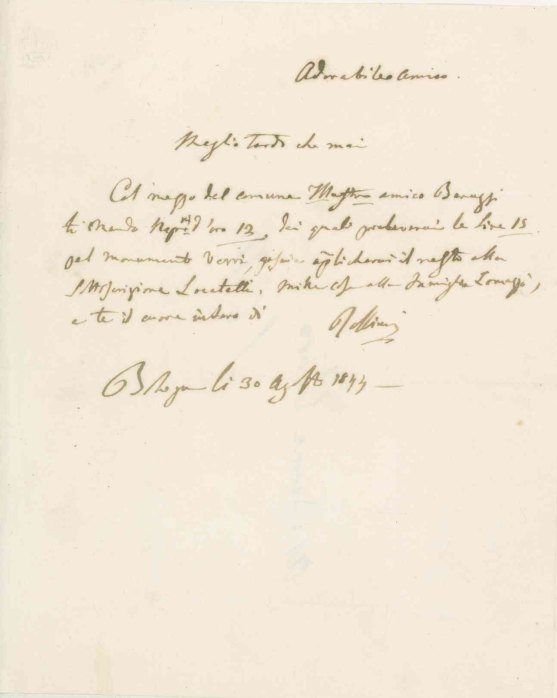 Adorabile Amico.
Meglio tardi che mai
Col mezzo del comune Maestro amico
ti mando d'oro 12, dei quali preleverai le Lire 15
pel monumento Verri, applicherai il resto alla
Sottoscrizione Locatelli, mille cose alla Famiglia
e te il cuore intero di
Rossini
Bologna li 30 Agosto 1844